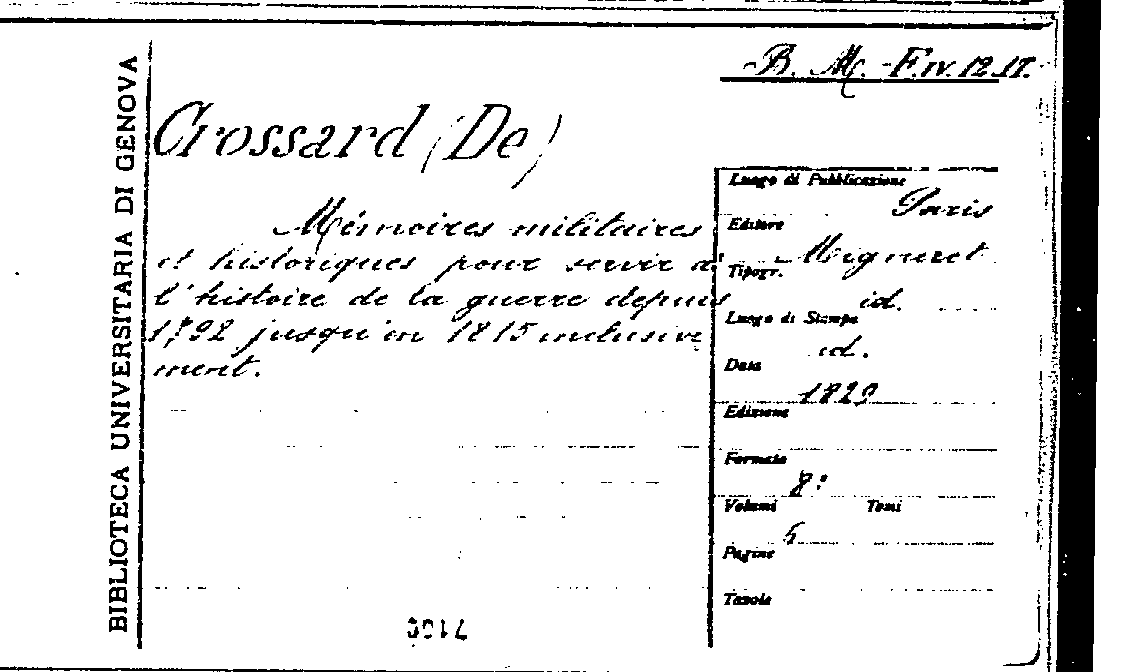 B. M. F. IV. 12. 17.
BIBLIOTECA UNIVERSITARIA DI GENOVA
Crossard (De)
Mémoires militaires
et historiques pour servir à
l'histoire de la guerre depuis
1792 jusqu'en 1815 inclusive
ment.
Luogo di Pubblicazione
Paris
Editore
Migneret
Tipogr.
id.
Luogo di Stampa
id.
Data
1829
Edizione
Formato
8°
Volumi Tomi
Pagine
Tavole